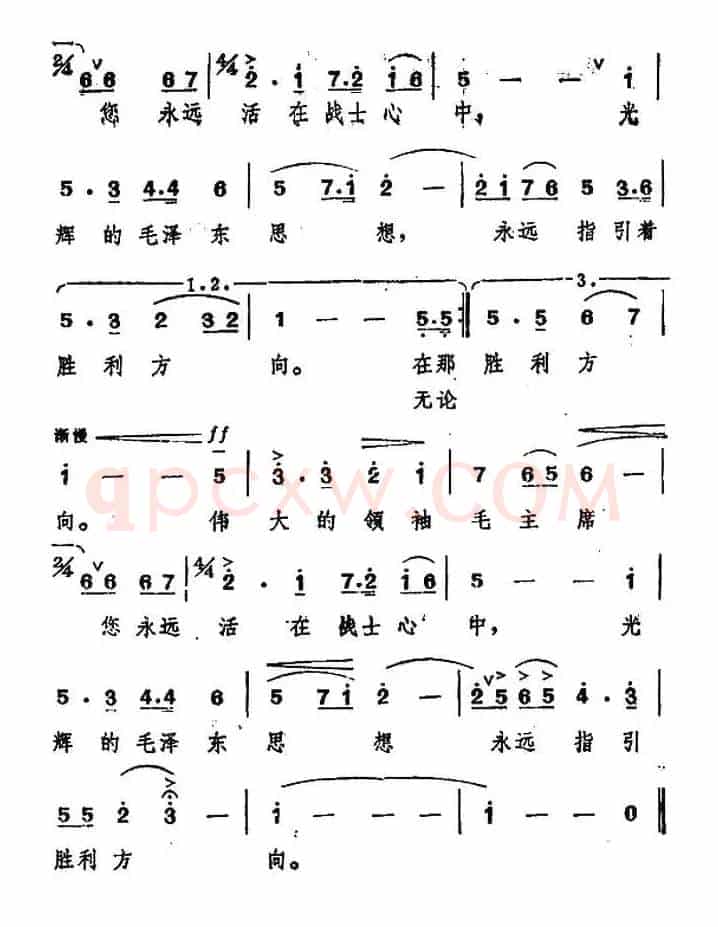 2/4 ∨ 66 67 | 4/4 2̇ . 1̇ 7.2̇ 1̇6 | 5 — — ∨ 1̇ |
您 永远 活 在 战士 心 中, 光
5 . 3 4.4 6 | 5 7.1̇ 2̇ — | 2̇1̇ 76 5 3.6 |
辉 的 毛泽 东 思 想, 永远 指 引着
1.2. 3.
5 . 3 2 32 | 1 — — 5.5 :‖ 5 . 5 6 7 |
胜 利 方 向。 在那 胜 利 方
无论
渐慢 ff
1̇ — — 5 | 3̇ . 3̇ 2̇ 1̇ | 7 65 6 — |
向。 伟 大 的 领 袖 毛 主 席
qpcxw.COM
2/4 ∨ 66 67 | 4/4 2̇ . 1̇ 7.2̇ 1̇6 | 5 — — 1̇ |
您 永远 活 在 战士 心 中, 光
5 . 3 4.4 6 | 5 71̇ 2̇ — | 2̇5 65 4̇ . 3̇ |
辉 的 毛泽 东 思 想 永远 指 引
55 2̇ 3̇ — | 1̇ — — — | 1̇ — 0 ‖
胜利 方 向。